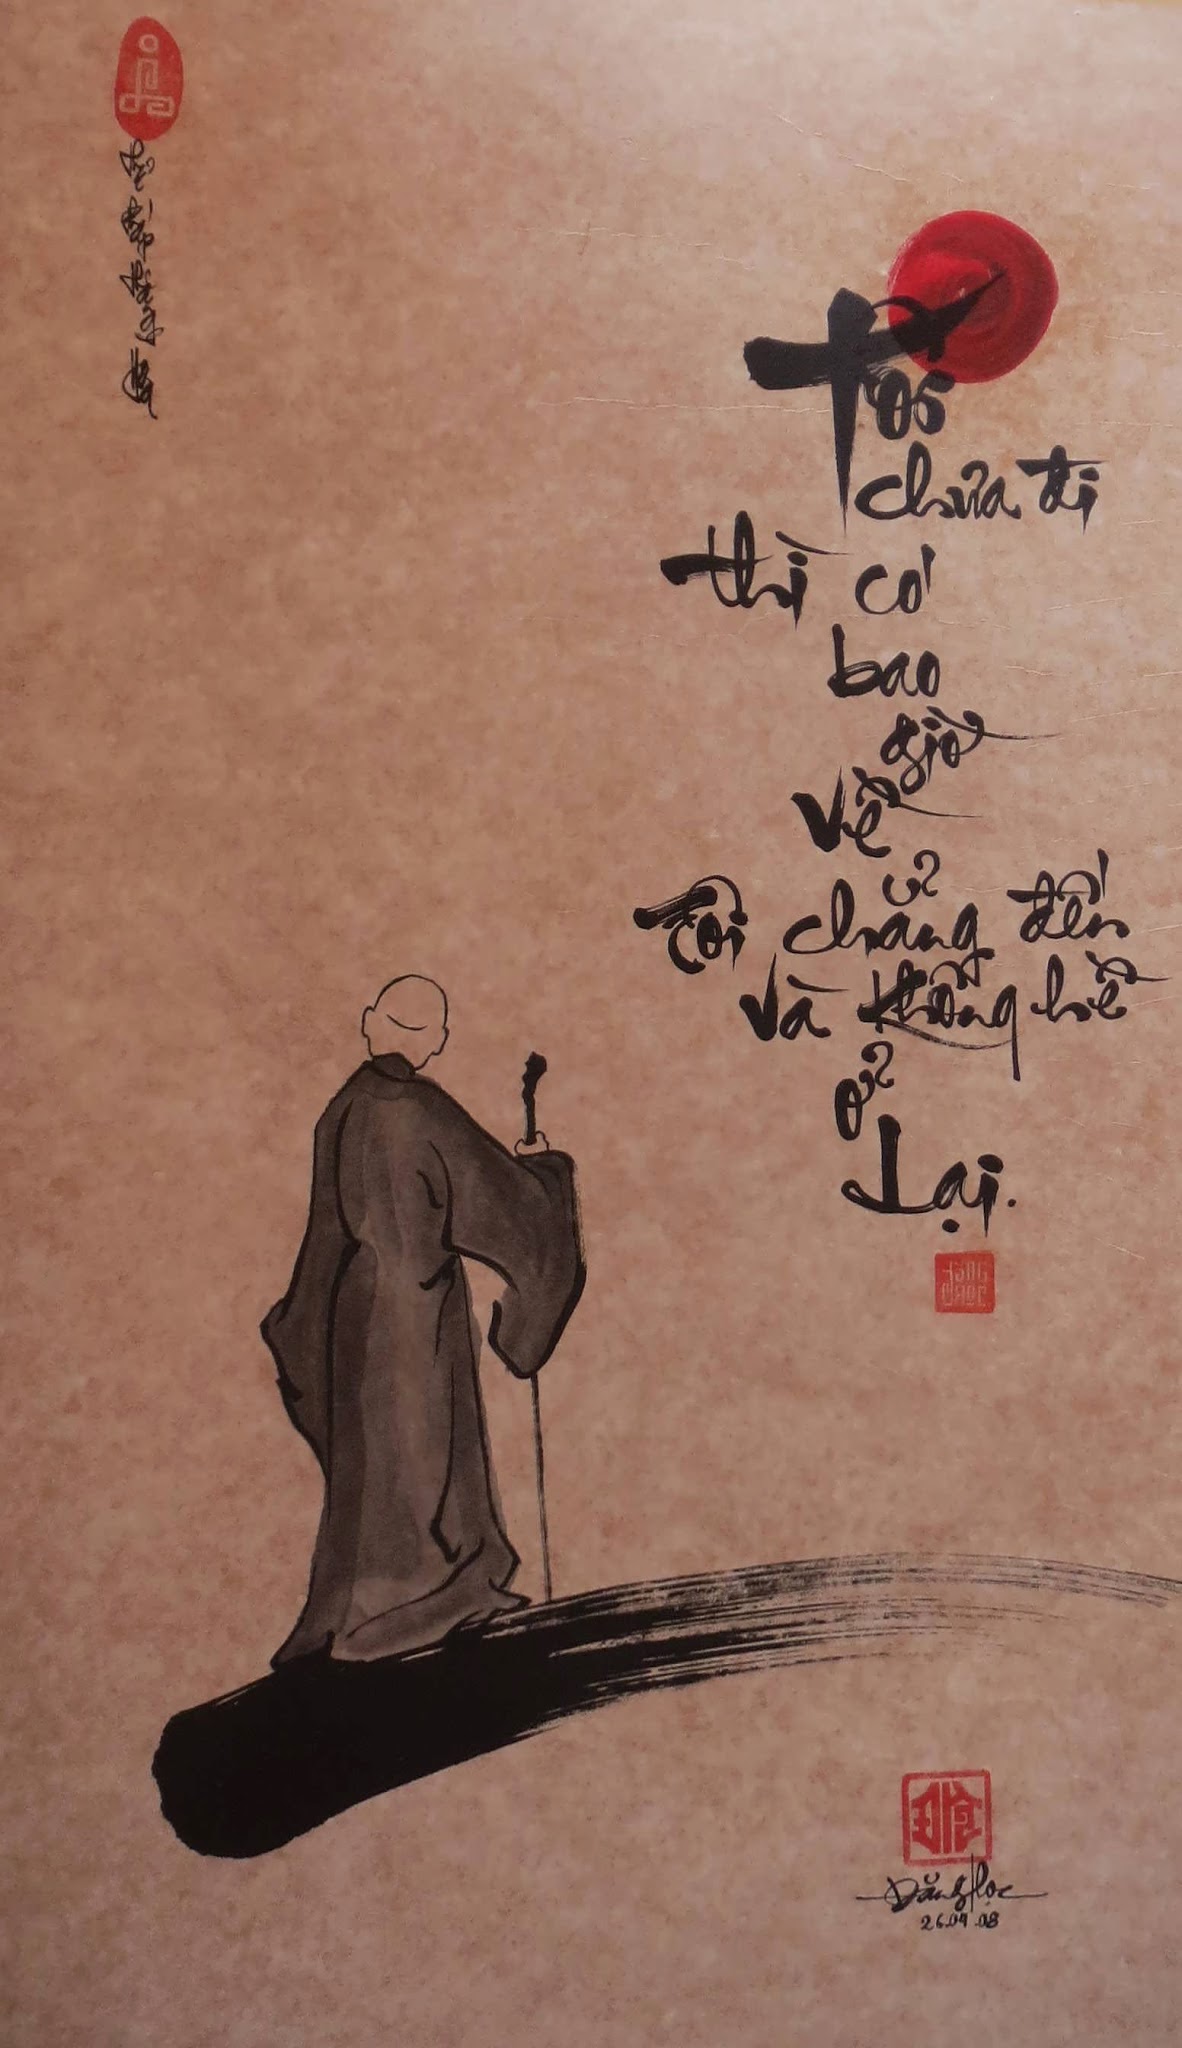 Tôi
chưa đi
thì có
bao
giờ
về
Tôi chẳng đến
và không hề
ở
Lại.
Đăng Học
26.04.08